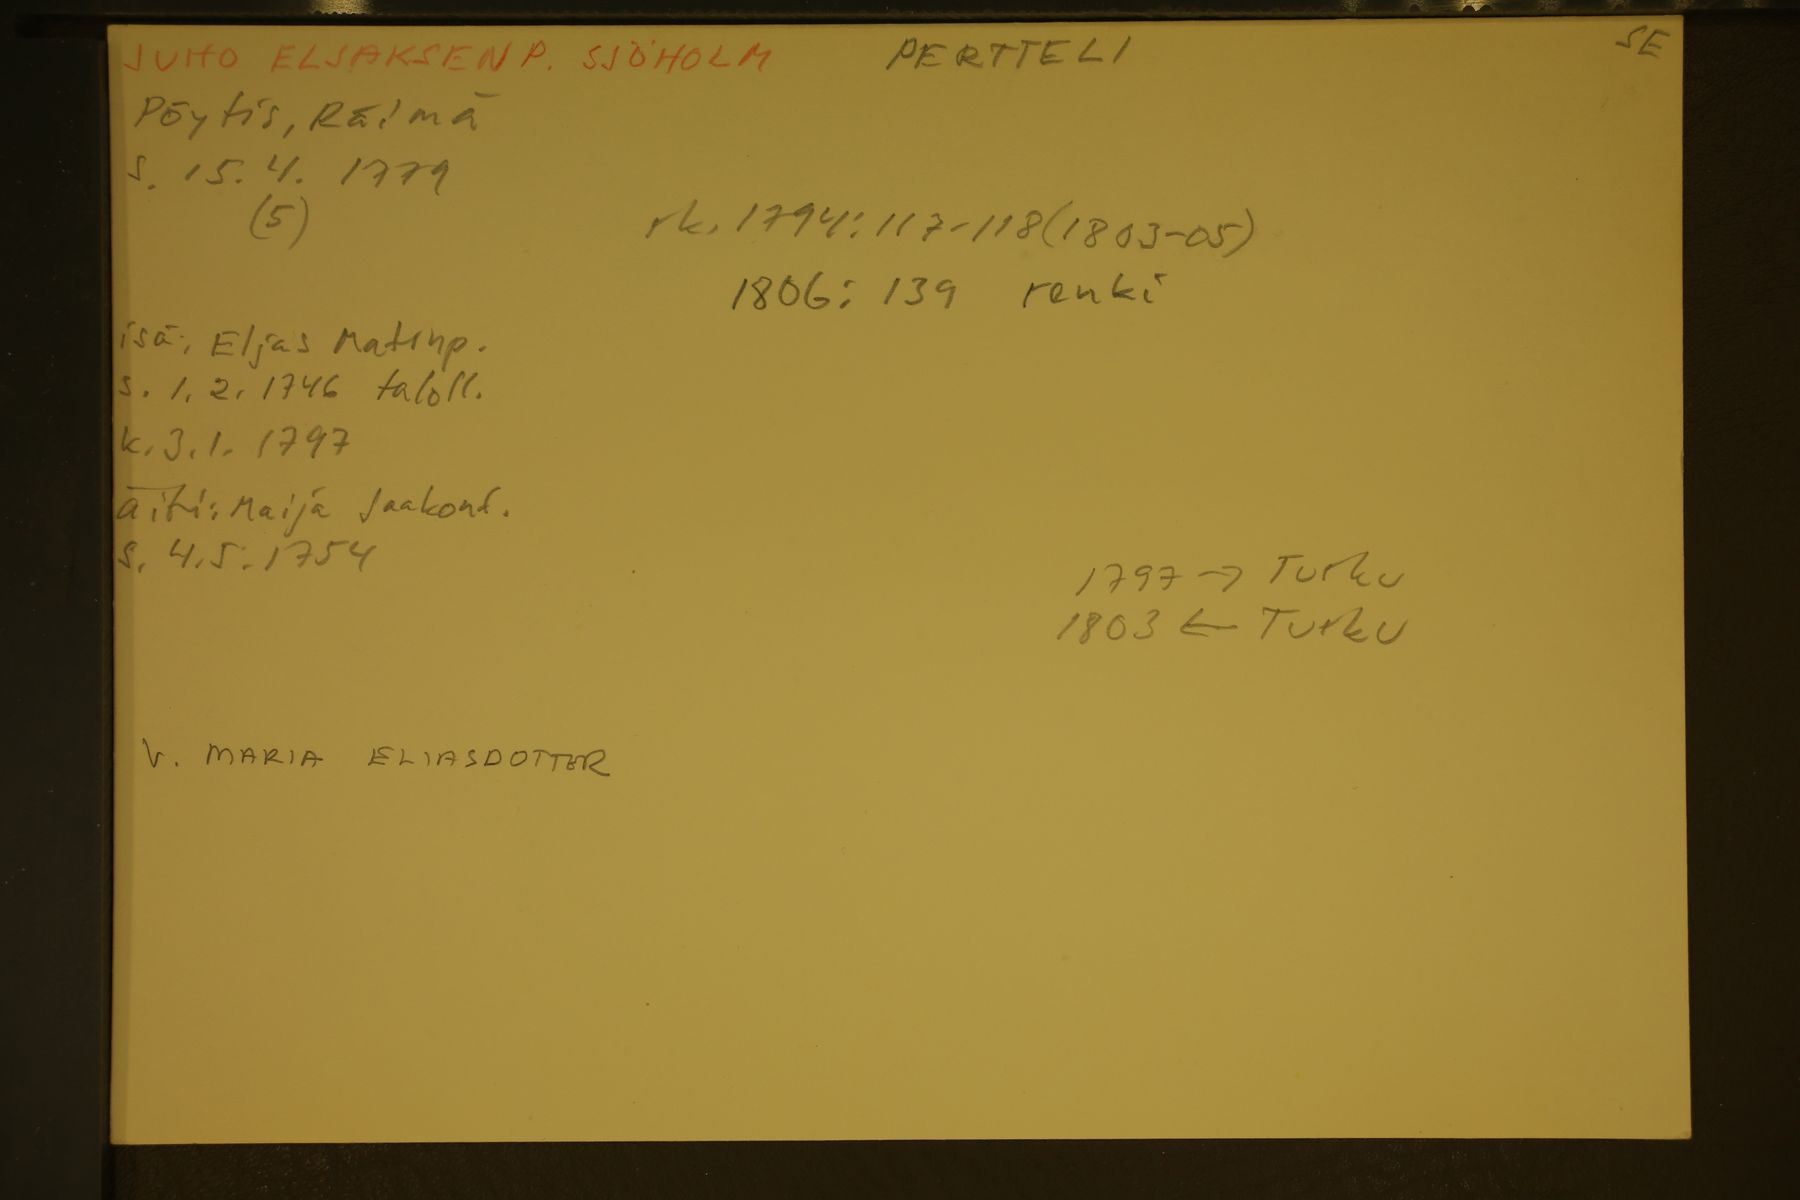 JUHO ELJAKSENP. SJÖHOLM PERTTELI SE
Pöytis, Räimä
s. 15.4. 1779
(5)
rk. 1794: 117-118 (1803-05)
1806: 139 renki
isä: Eljas Matinp.
s. 1.2. 1746 taloll.
k. 3.1. 1797
äiti: Maija Jaakont.
s. 4.5. 1754
1797 → Turku
1803 ← Turku
V. MARIA ELIASDOTTER